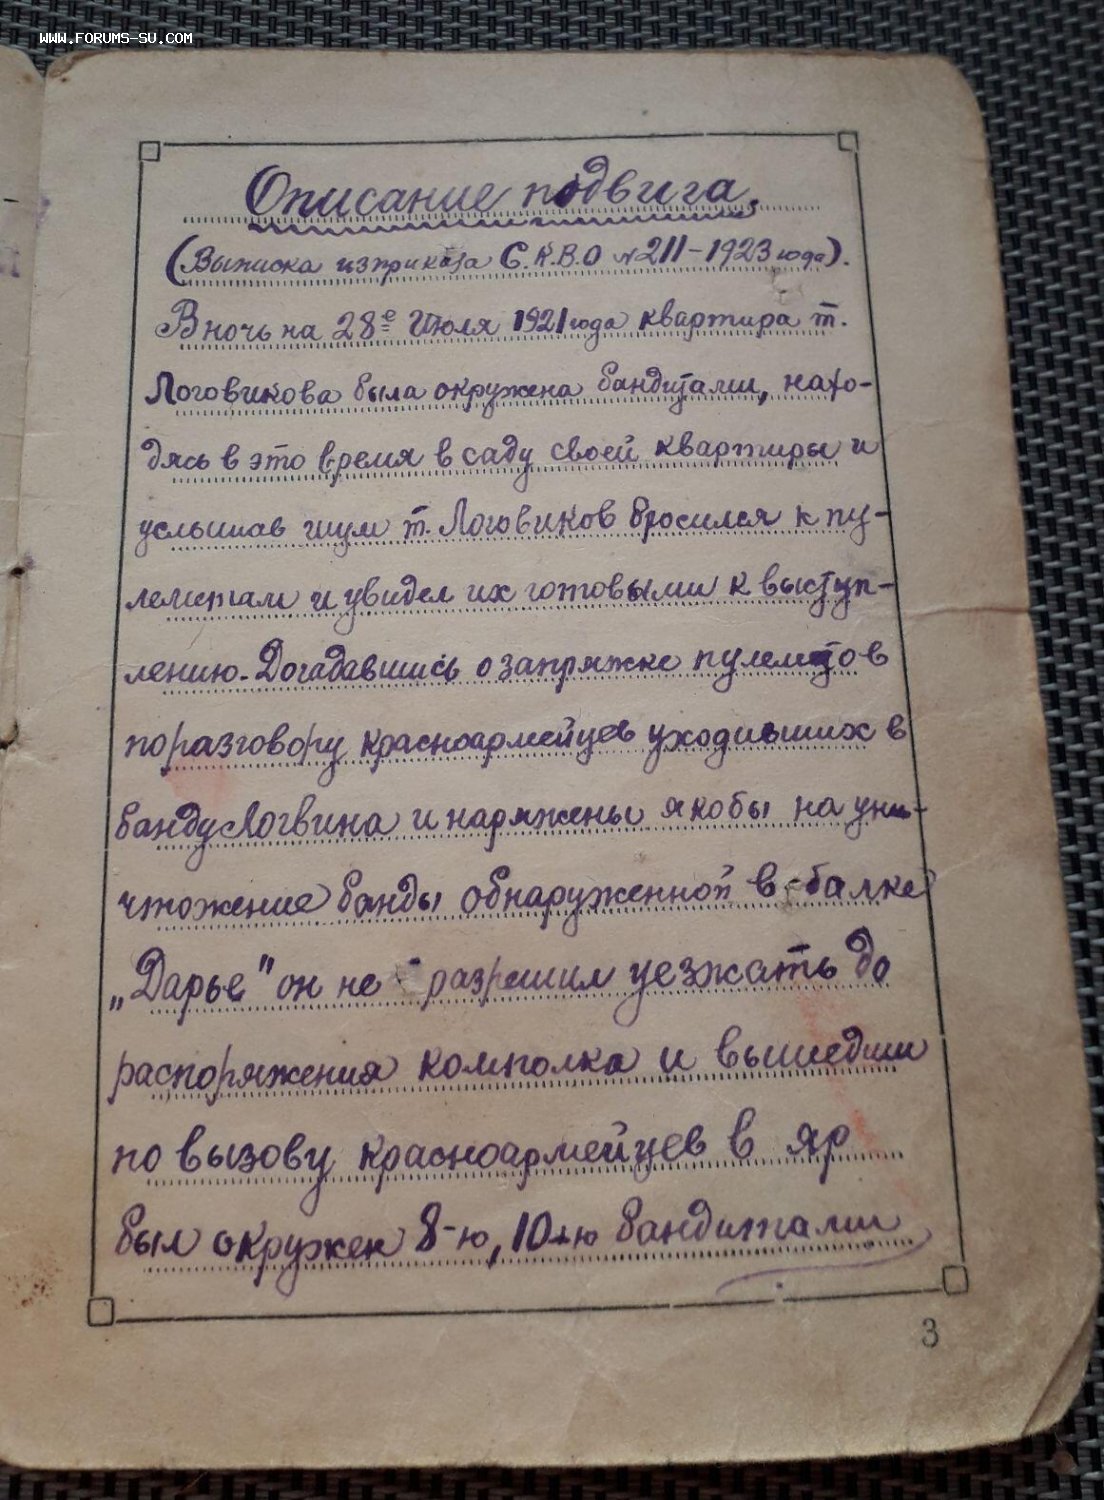 WWW.FORUMS-SU.COM
Описание подвига.
(Выписка из приказа С.К.В.О №211-1923 года).
В ночь на 28е Июля 1921 года квартира т.
Логовикова была окружена бандитами, нахо-
дясь в это время в саду своей квартиры и
услышав шум т. Логовиков бросился к пу-
леметам и увидел их готовыми к выступ-
лению. Догадавшись о запряжке пулеметов
по разговору красноармейцев уходивших в
банду Логвина и наряжены якобы на уни-
чтожение банды обнаруженной в балке
„Дарье" он не разрешил уезжать до
распоряжения комполка и вышедши
по вызову красноармейцев в яр
был окружен 8-ю, 10-ю бандитами
3